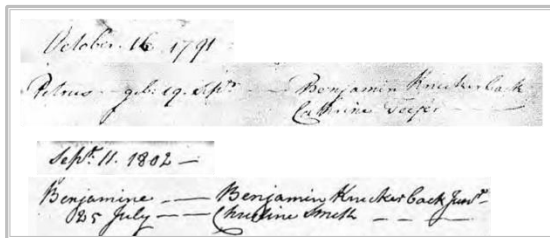 October. 16. 1791
Petrus — geb: 19. Sept: — Benjamin Knickerback
Cathrine
Sept. 11. 1802 —
Benjamine — — Benjamin Knickerback Junr.
25 July — — Christine Smith — — —